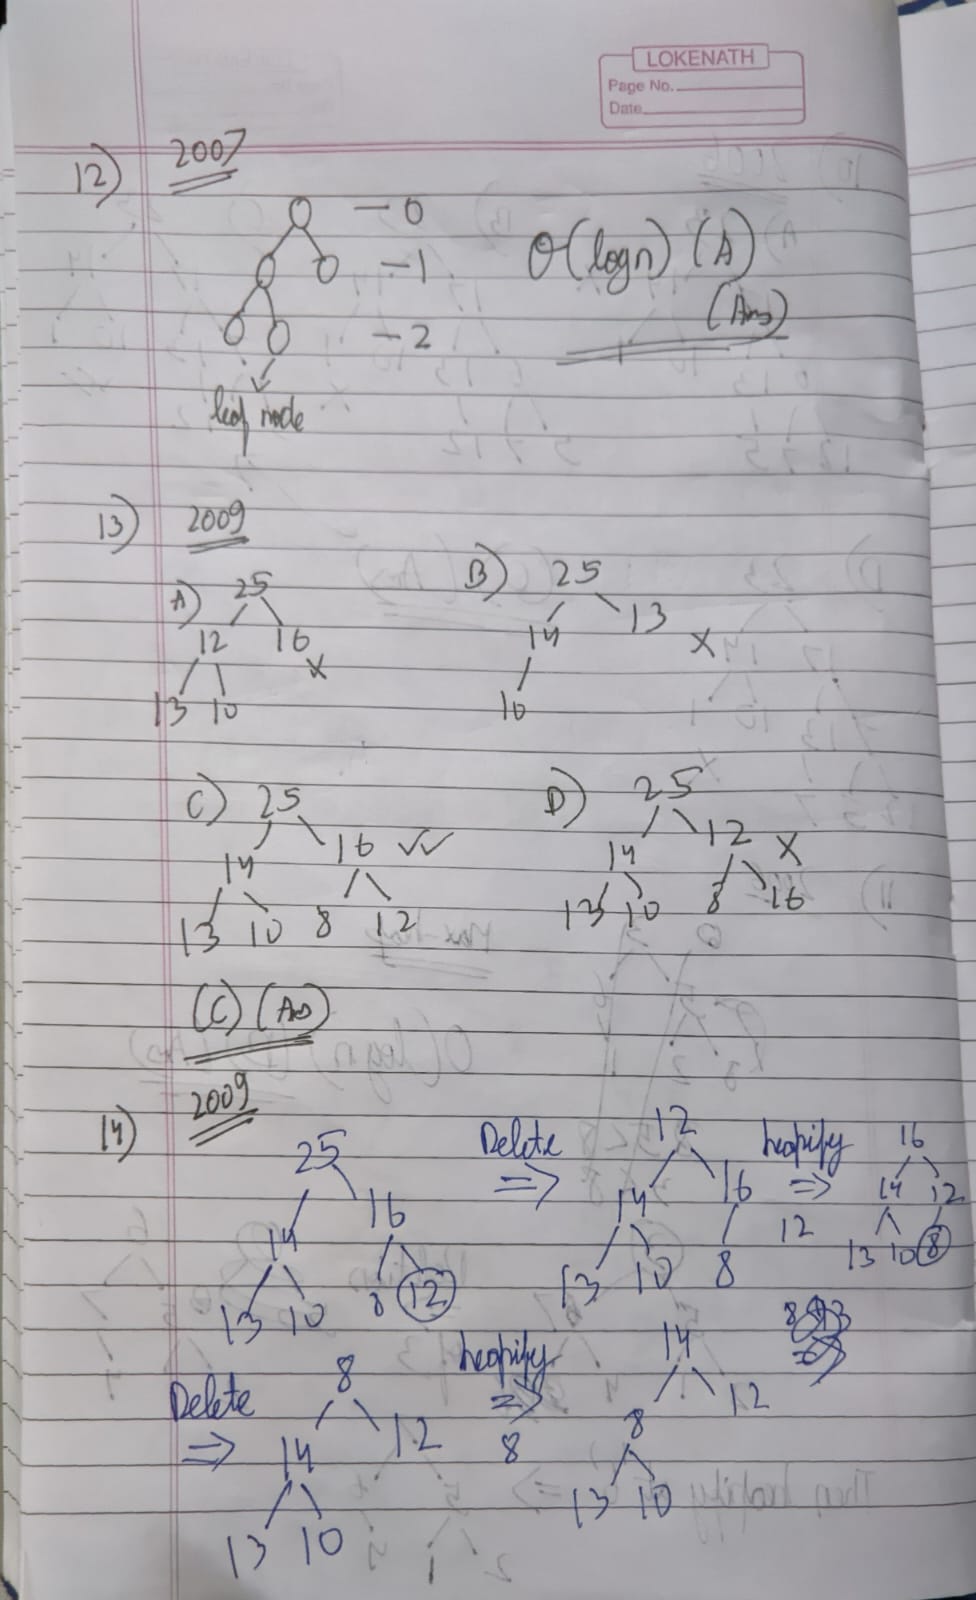 LOKENATH
Page No.
Date
12) 2007
- 0
- 1
- 2
leaf node
θ(logn) (A)
(Ans)
13) 2009
A) 25
12 16 X
13 10
B) 25
14 13 X
10
C) 25
14 16 ✓✓
13 10 8 12
D) 25
14 12 X
13 10 8 16
(C) (Ans)
14) 2009
25
14 16
13 10 8 12
Delete
⇒
12
14 16
13 10 8
heapify
⇒
12
16
14 12
13 10 8
Delete
⇒
8
14 12
13 10
heapify
⇒
8
14
8 12
13 10